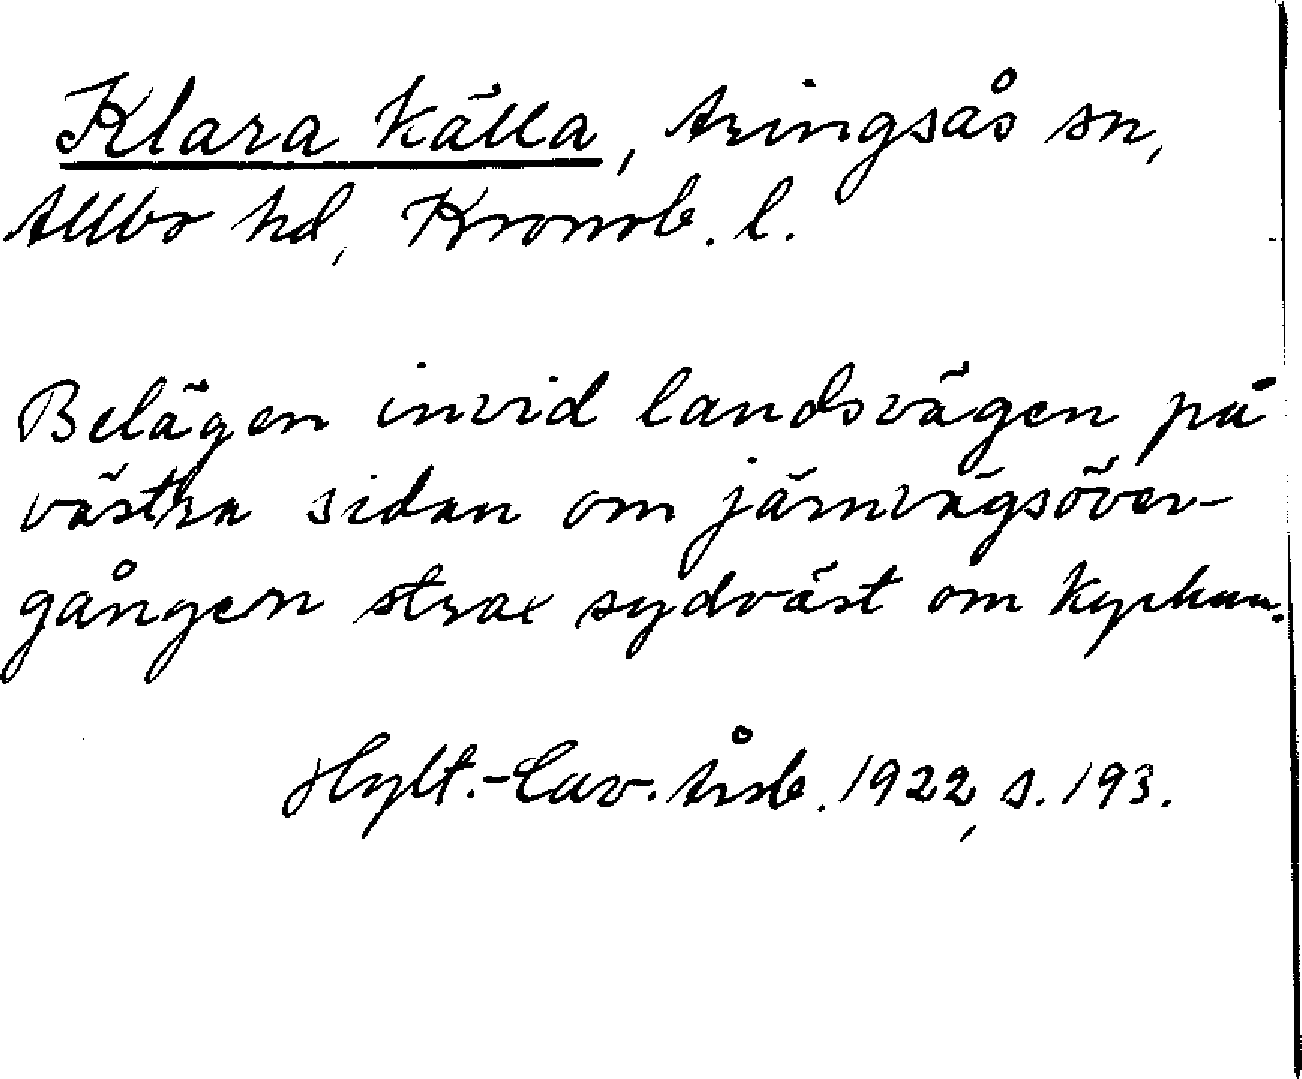 Klara källa, Aringsås sn,
Allbo hd, Kronob. l.
Belägen invid landsvägen på
västra sidan om järnvägsöver-
gången strax sydväst om kyrkan.
Hylt.-Cav. Årsb. 1922, s. 193.